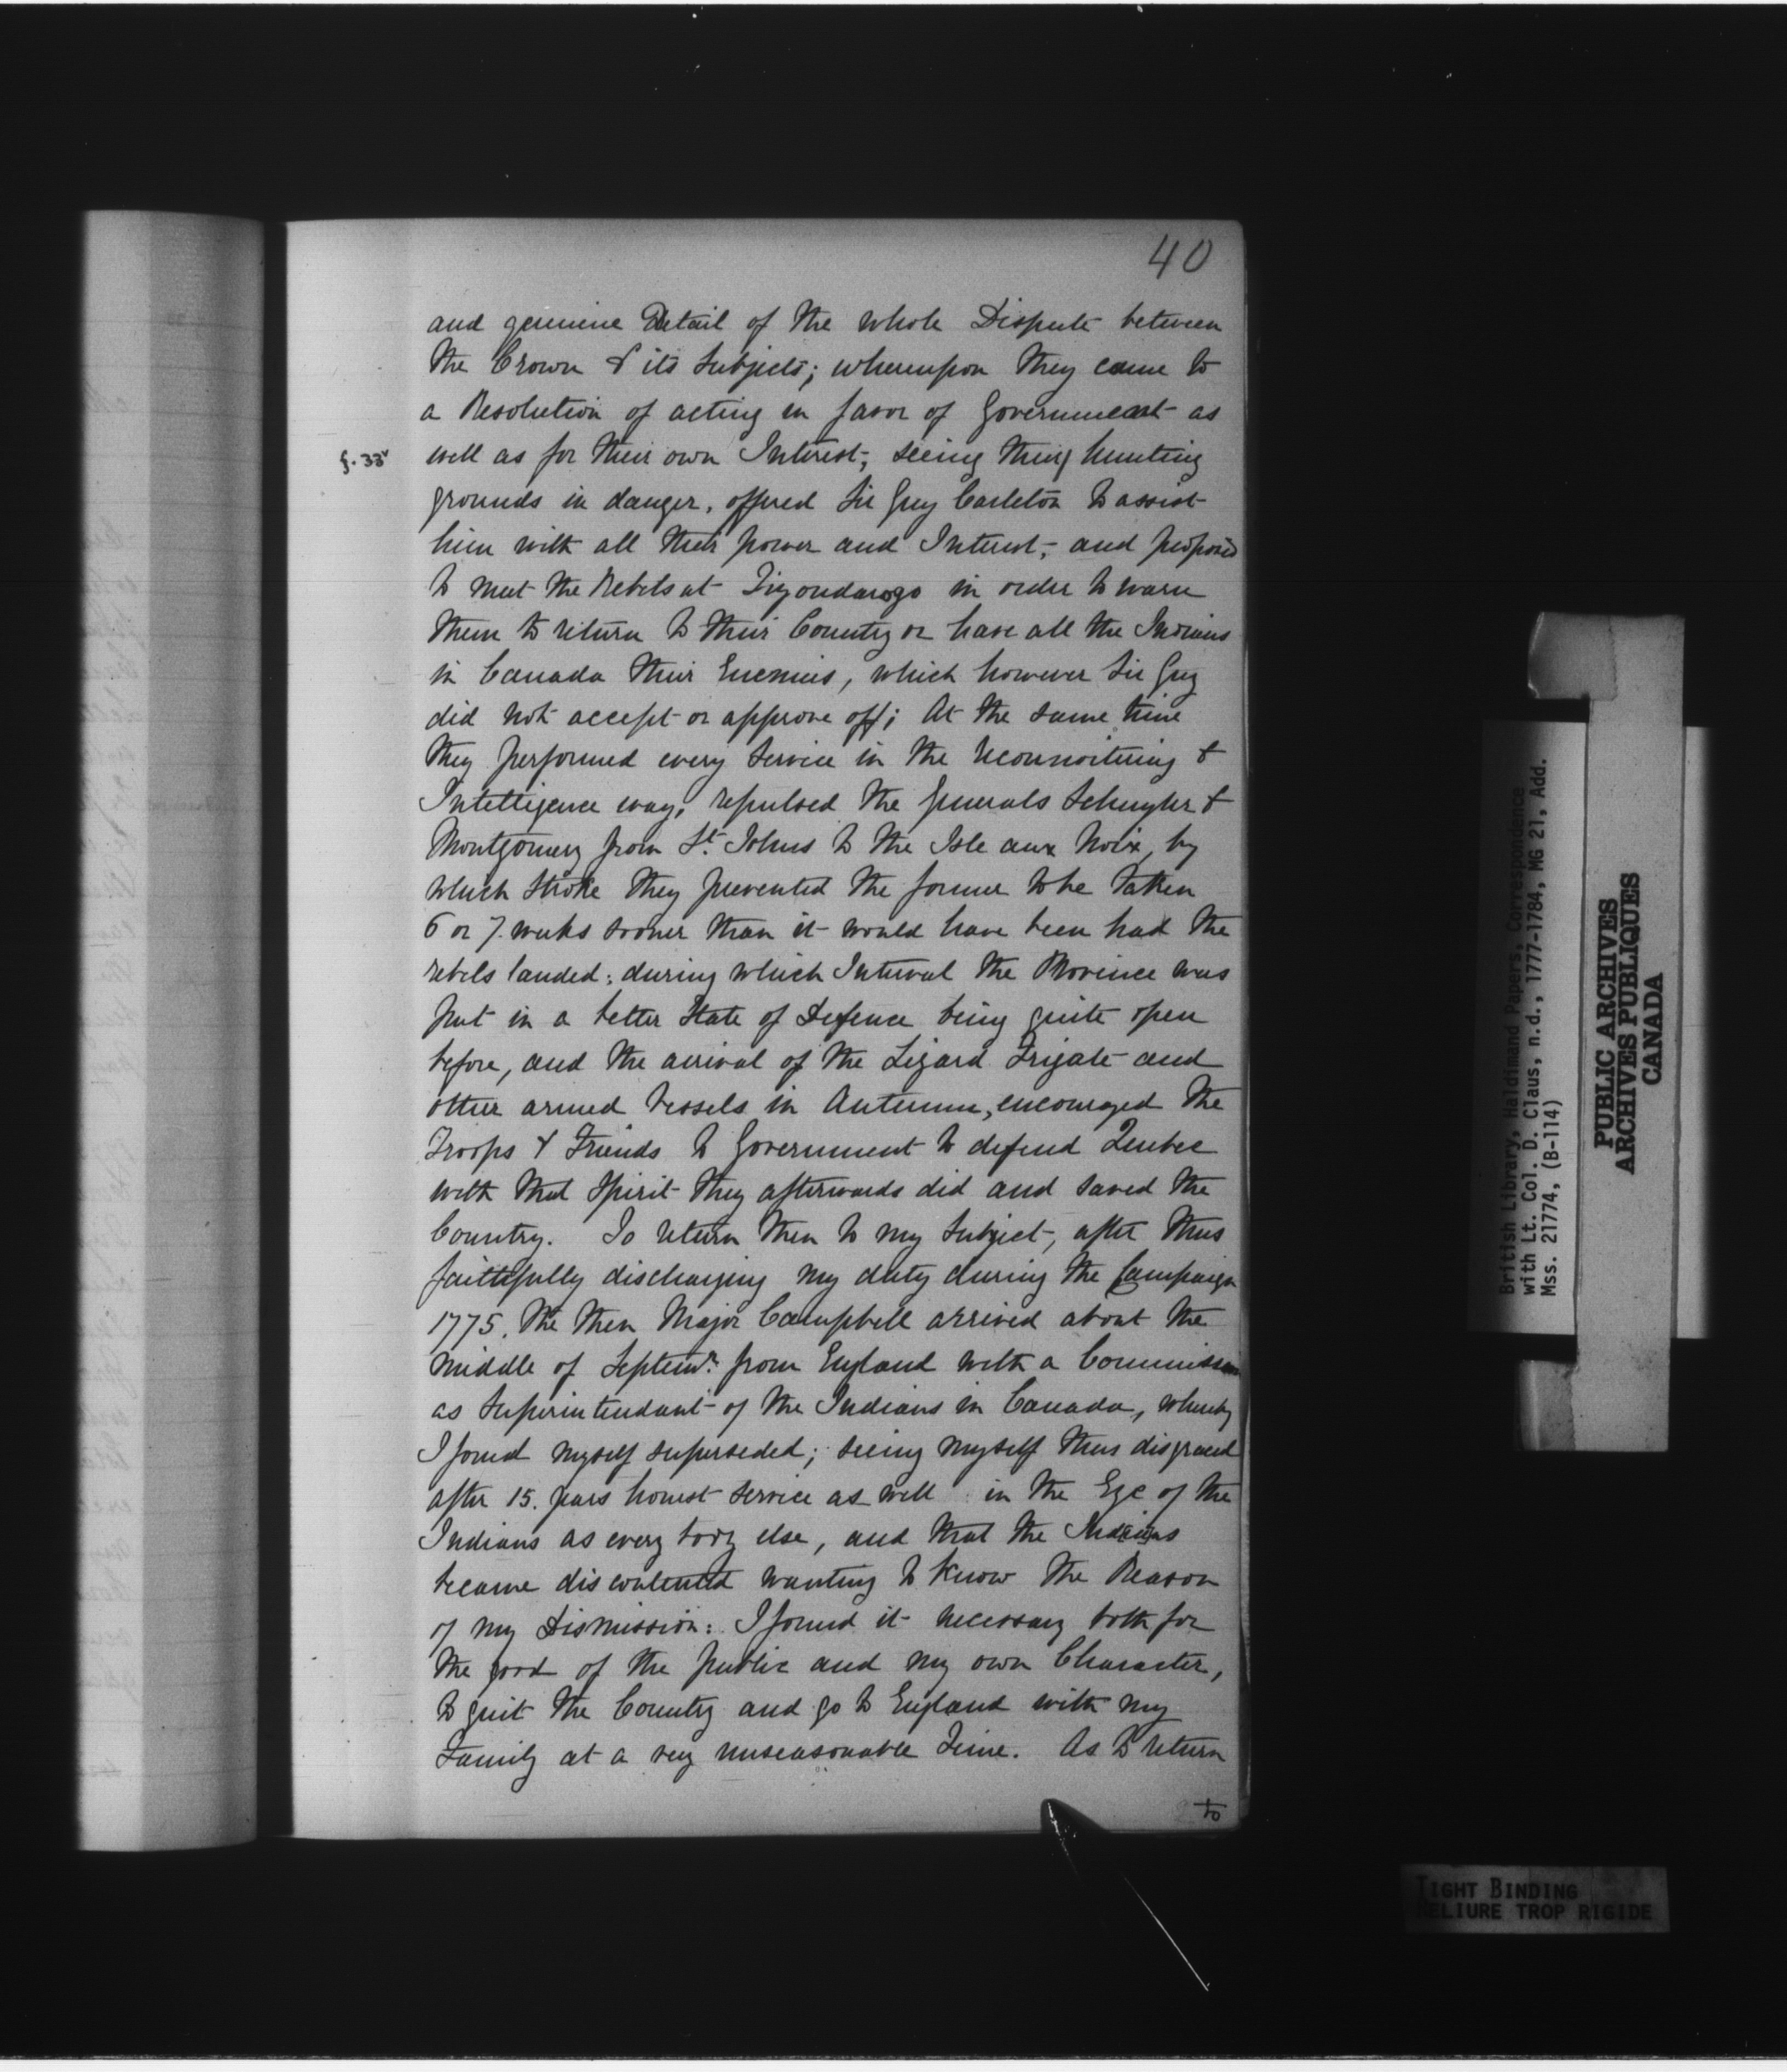 40
and genuine Detail of the whole Dispute between
the Crown & its Subjects; whereupon they came to
a Resolution of acting in favor of Government as
f. 33v well as for their own Interest, seeing their hunting
grounds in danger, offered Sir Guy Carleton to assist
him with all their power and Interest, and proposed
to meet the Rebels at Tiyondarogo in order to warn
them to return to their Country or have all the Indians
in Canada their Enemies, which however Sir Guy
did not accept or approve off; At the same time
they performed every Service in the reconnoitering &
Intelligence way, repulsed the Generals Schuyler &
Montgomery from St. Johns to the Isle aux Noix, by
which stroke they prevented the former to be taken
6 or 7 weeks sooner than it would have been had the
rebels landed; during which Interval the Province was
put in a better State of Defence being quite open
before, and the arrival of the Lizard Frigate and
other armed Vessels in Autumn, encouraged the
Troops & Friends to Government to defend Quebec
with that Spirit they afterwards did and saved the
Country. To return then to my Subject, after thus
faithfully discharging my duty during the Campaign
1775, the then Major Campbell arrived about the
middle of Septemr. from England with a Commission
as Superintendant of the Indians in Canada, whereby
I found myself superseded; seeing myself thus disgraced
after 15. years honest Service as well in the Eye of the
Indians as every body else, and that the Indians
became discontented wanting to know the Reason
of my Dismission: I found it necessary both for
the good of the public and my own Character,
to quit the Country and go to England with my
Family at a very unseasonable Time. As to return
to
British Library, Haldimand Papers, Correspondence
with Lt. Col. D. Claus, n.d., 1777-1784, MG 21, Add.
Mss. 21774, (B-114)
PUBLIC ARCHIVES
ARCHIVES PUBLIQUES
CANADA
TIGHT BINDING
RELIURE TROP RIGIDE